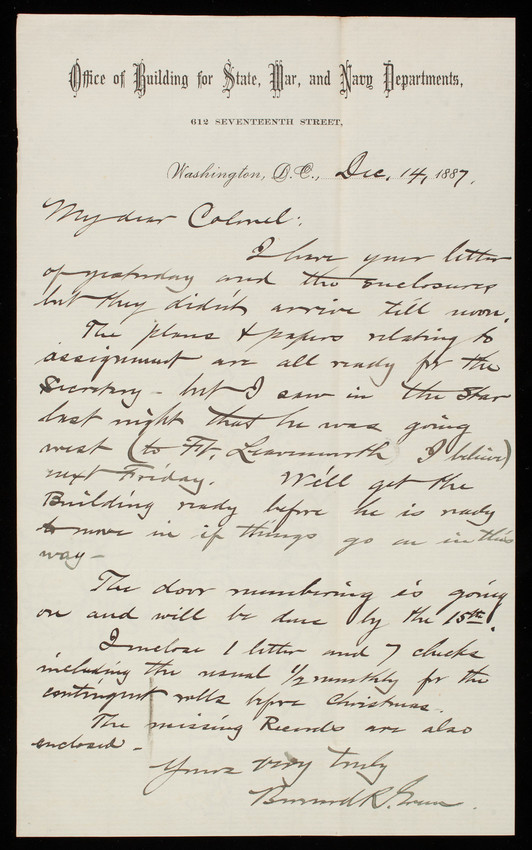 Office of Building for State, War, and Navy Departments,
612 SEVENTEENTH STREET,
Washington, D.C., Dec. 14, 1887.
My dear Colonel:
I have your letter
of yesterday and the enclosures
but they didn't arrive till noon.
The plans & papers relating to
assignment are all ready for the
Secretary - but I saw in the Star
last night that he was going
west (to Ft. Leavenworth I believe)
next Friday. We'll get the
Building ready before he is ready
to move in if things go on in this
way -
The door numbering is going
on and will be done by the 15th.
I inclose 1 letter and 7 checks
including the usual 1/2 monthly for the
contingent rolls before Christmas.
The missing Records are also
enclosed -
Yours very truly
Bernard R. Green.